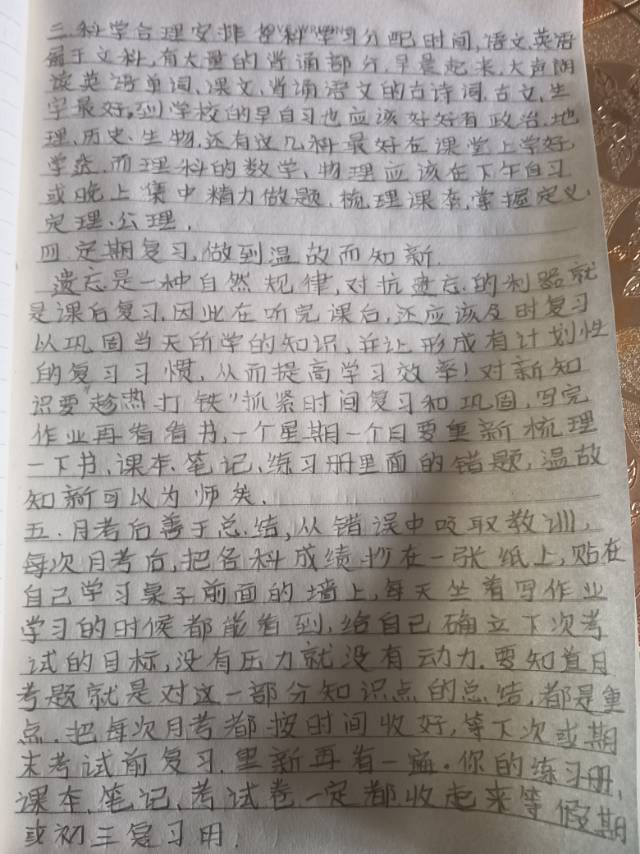 三.科学合理安排各科学习分配时间,语文.英语
属于文科,有大量的背诵部分,早晨起来,大声阅
读英语单词、课文,背诵语文的古诗词、古文,生
字最好,到学校的早自习也应该好好看政治、地
理、历史、生物,还有这几科最好在课堂上学好,
学透.而理科的数学、物理应该在下午自习
或晚上集中精力做题.梳理课本,掌握定义、
定理、公理.
四.定期复习,做到温故而知新.
遗忘是一种自然规律,对抗遗忘的利器就
是课后复习.因此在听完课后,还应该及时复习
以巩固当天所学的知识,并让形成有计划性
的复习习惯,从而提高学习效率!对新知
识要"趁热打铁"抓紧时间复习和巩固,写完
作业再看看书,一个星期一个月要重新梳理
一下书,课本、笔记、练习册里面的错题,温故
知新可以为师矣.
五.月考后善于总结,从错误中吸取教训,
每次月考后,把各科成绩抄在一张纸上,贴在
自己学习桌子前面的墙上,每天坐着写作业
学习的时候都能看到,给自己确立下次考
试的目标,没有压力就没有动力.要知道月
考题就是对这一部分知识点的总结,都是重
点.把每次月考都按时间收好,等下次或期
末考试前复习.重新再看一遍.你的练习册,
课本、笔记、考试卷一定都收起来等假期
或初三复习用.